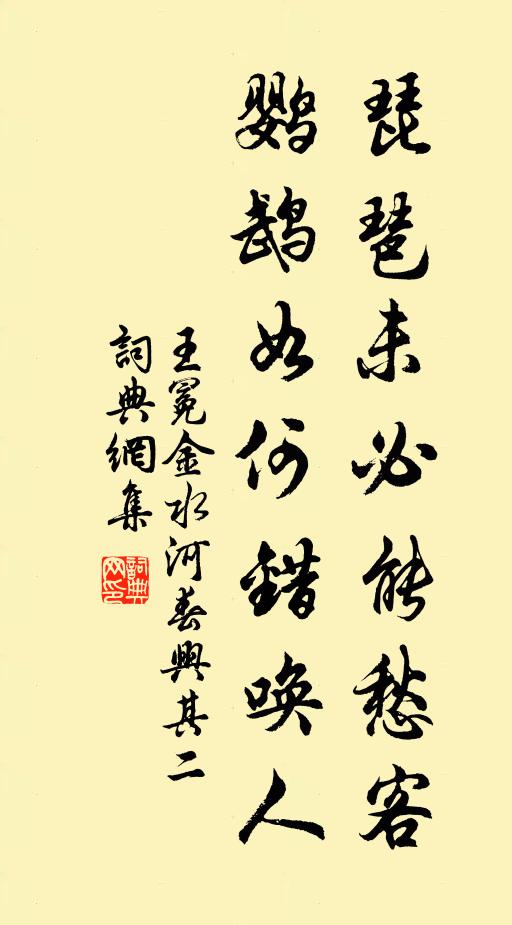 琵琶未必能愁客
鸚鵡如何錯喚人
王冕金水河春興其二
詞典網集
詞典網印